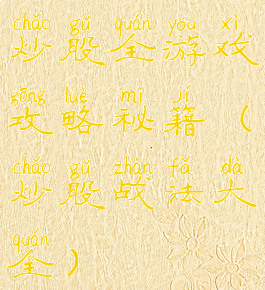 chǎo gǔ quán yóu xì
炒股全游戏
gōng lüè mì jí
攻略秘籍（
chǎo gǔ zhàn fǎ dà
炒股战法大
quán
全）